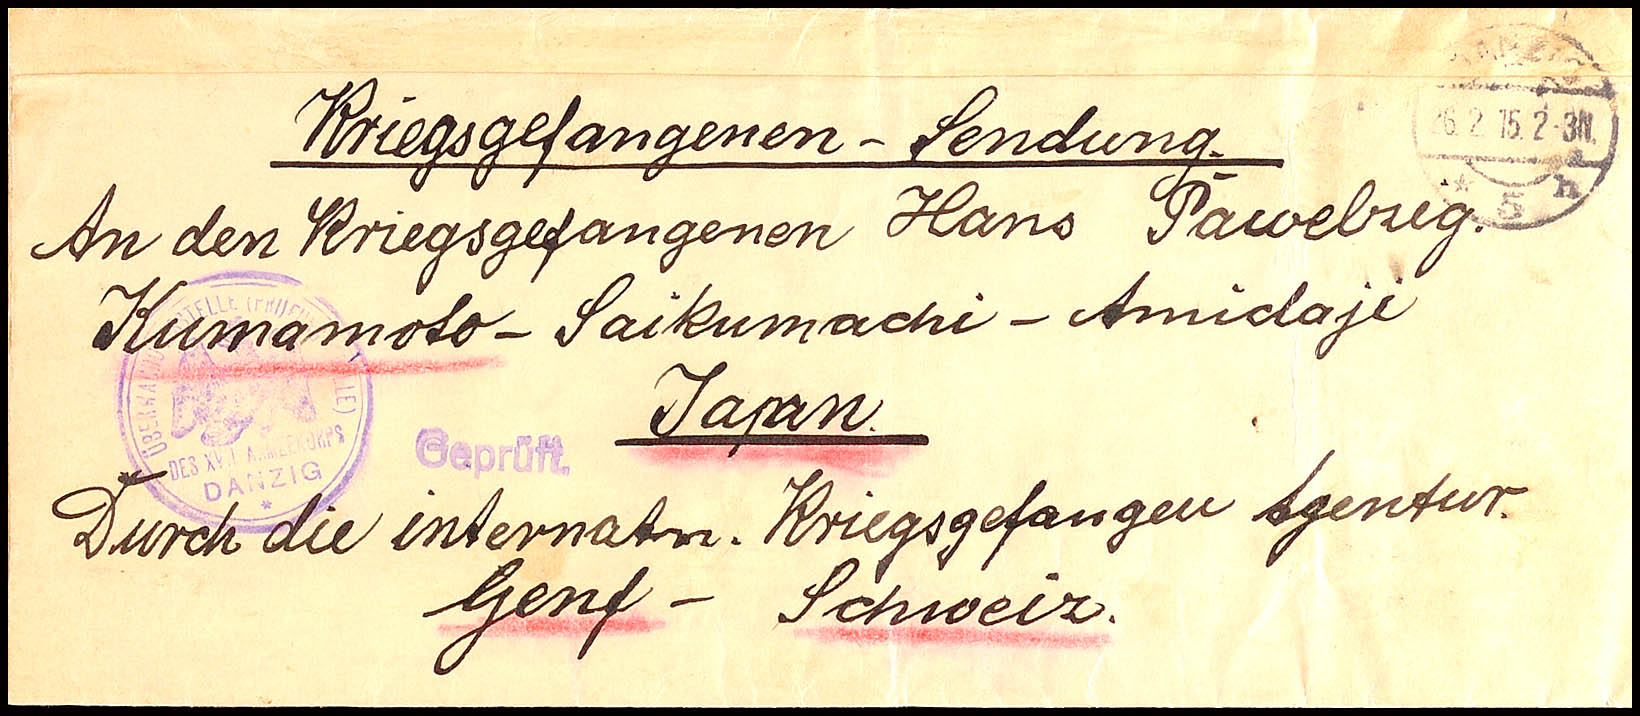 Kriegsgefangenen - Sendung.
An den Kriegsgefangenen Hans Pawelzig.
Kumamoto - Saikumachi - Amidaji
Japan.
Durch die internatn. Kriegsgefangen Agentur.
Genf - Schweiz.
26.2.15.2-3N.
* 5 h
DES XVII ARMEEKORPS
DANZIG
*
Geprüft.